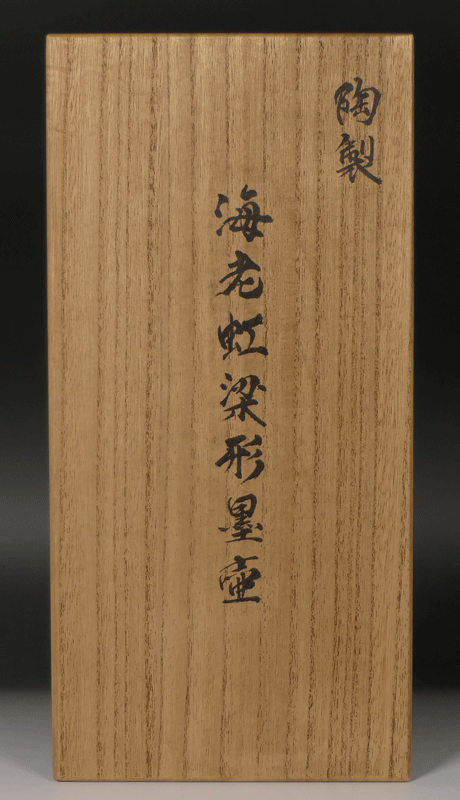 陶製
海老虹梁形墨壺